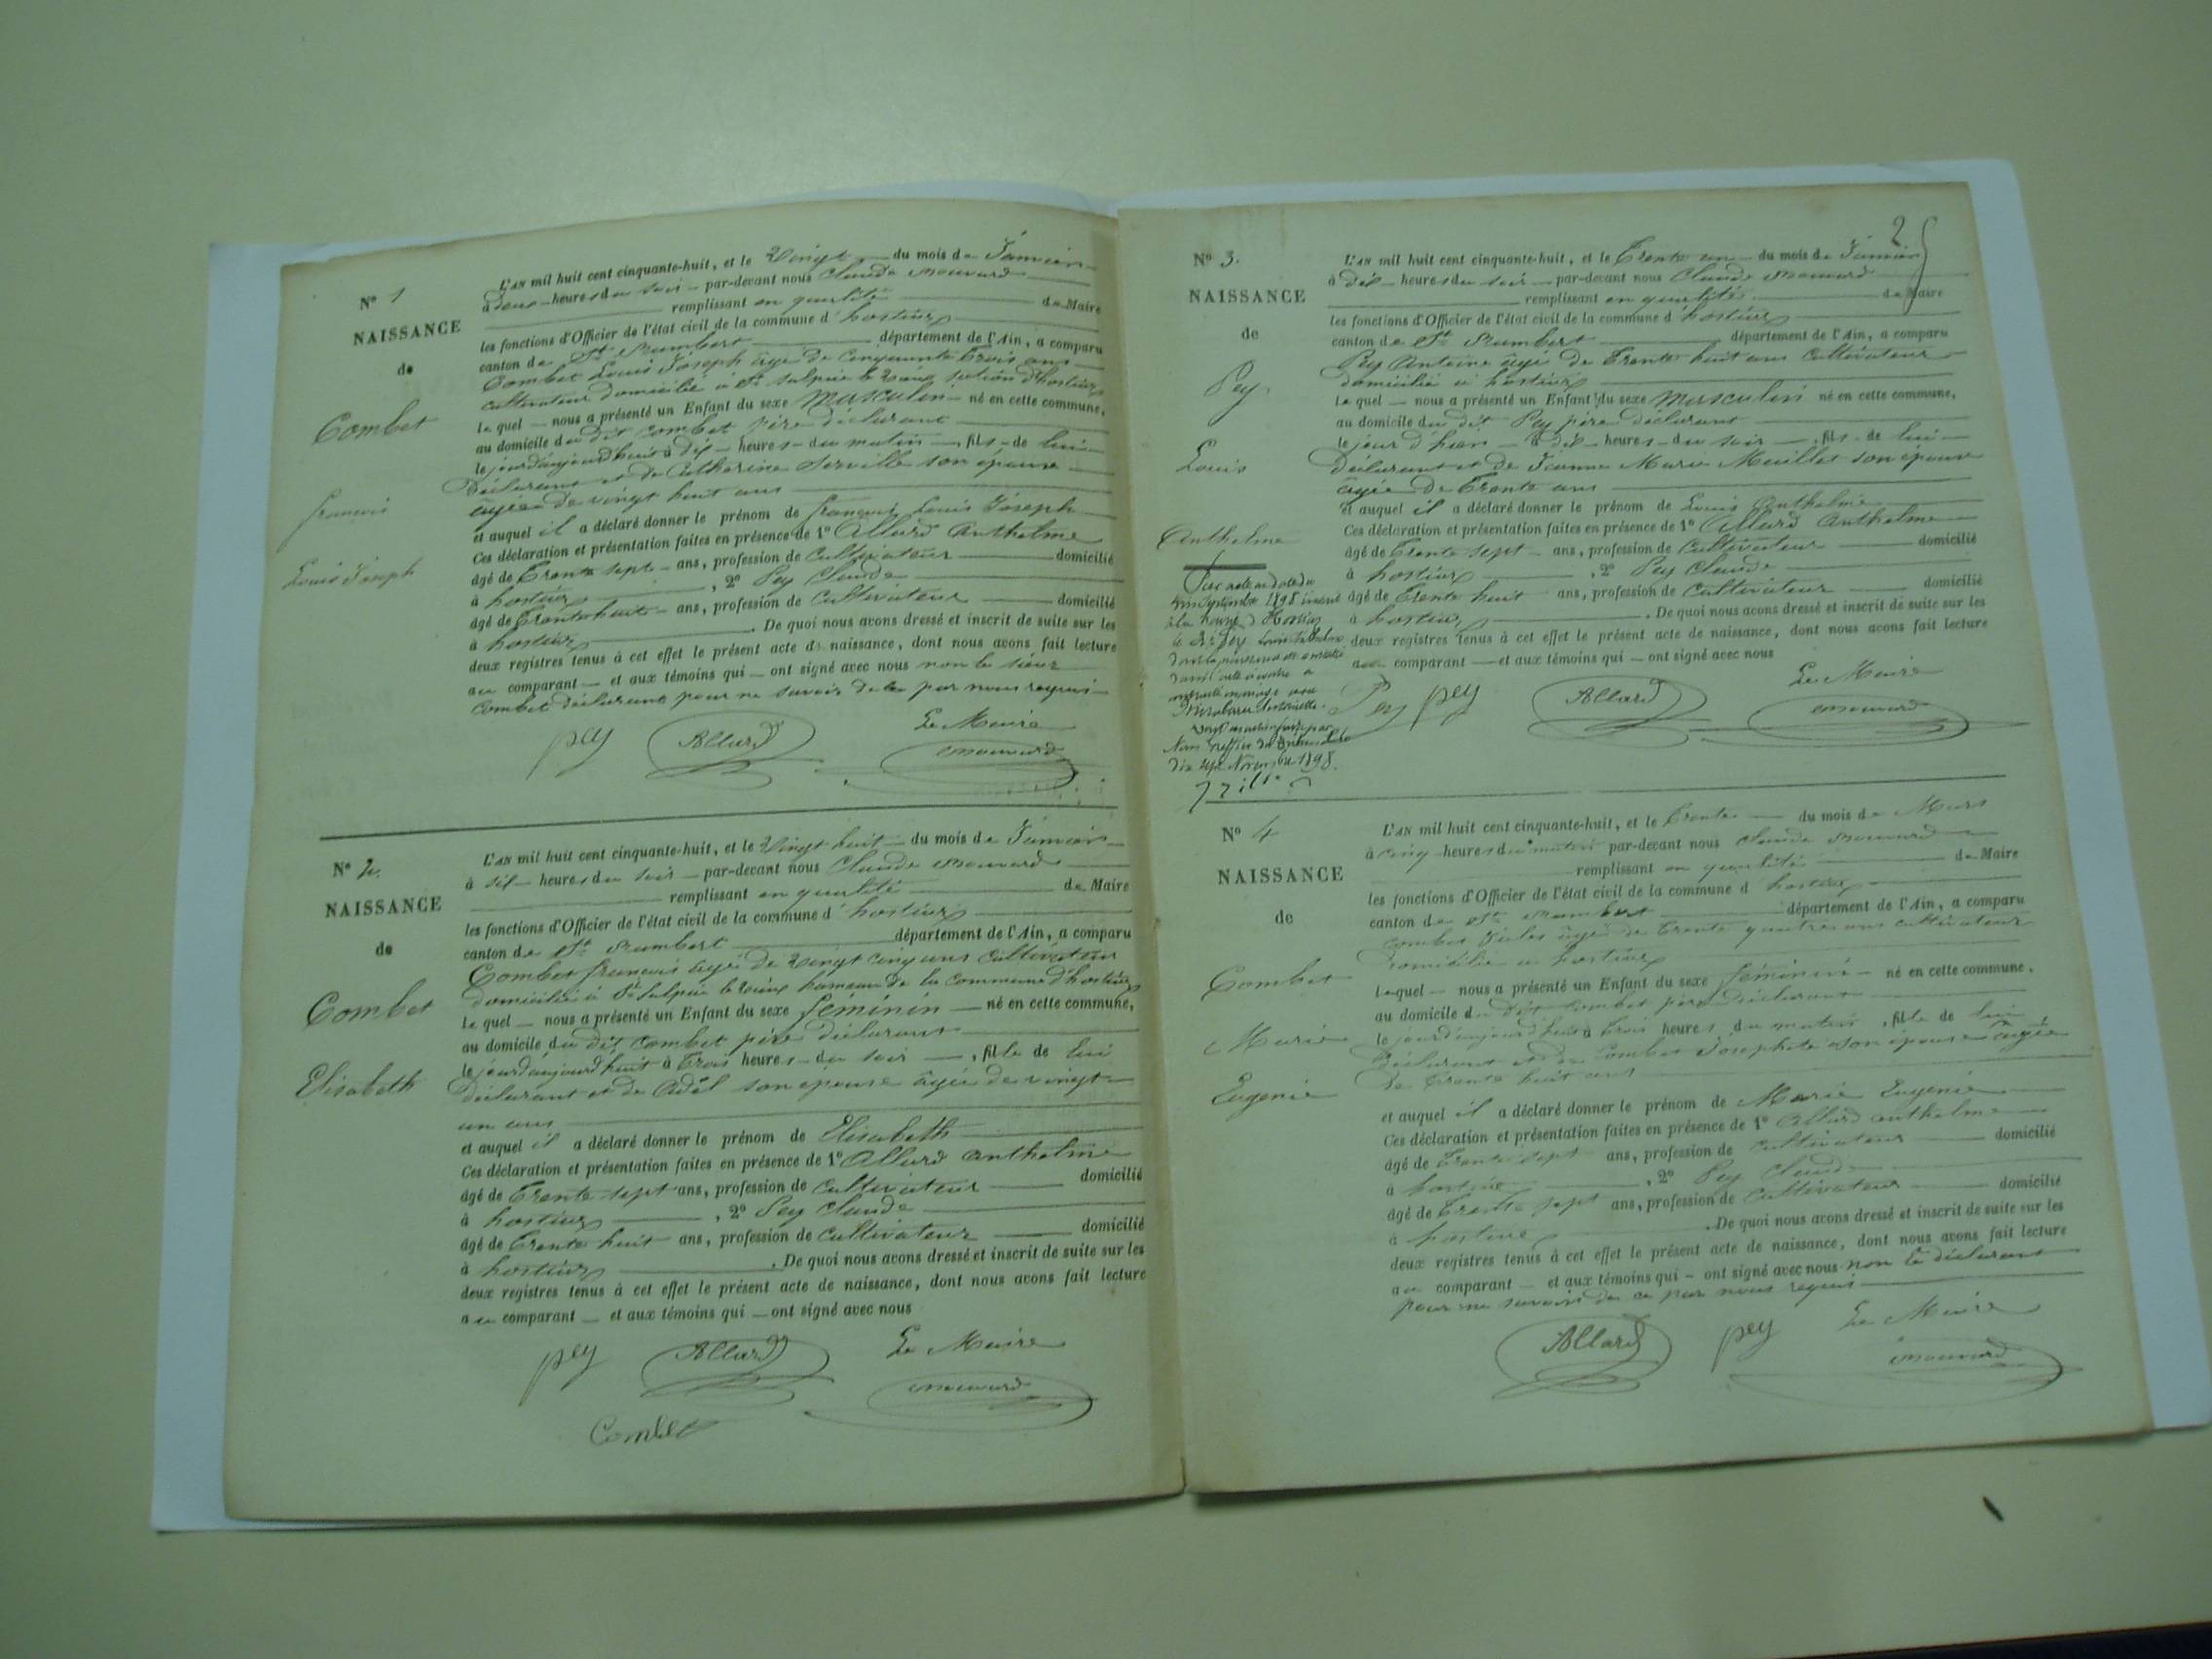 N° 1
NAISSANCE
de
Combet
françois
Louis Joseph
L'AN mil huit cent cinquante-huit, et le Vingt du mois de Janvier
à deux heures du soir par-devant nous Claude
remplissant en qualité de Maire
les fonctions d'Officier de l'état civil de la commune d' hostiaz
canton de St Rambert département de l'Ain, a comparu
Combet Louis Joseph âgé de Cinquante trois ans
cultivateur domicilié à St Sulpice le vieux d'hostiaz
lequel nous a présenté un Enfant du sexe Masculin né en cette commune,
au domicile du dit Combet père déclarant
le jour d'aujourd'huit à dix heures du matin, fils de lui
déclarant et de Catherine son épouse
âgée de vingt huit ans
et auquel il a déclaré donner le prénom de françois Louis Joseph
Ces déclaration et présentation faites en présence de 1° Allard Anthelme
âgé de Trente sept ans, profession de Cultivateur domicilié
à hostiaz, 2° Pey Claude
âgé de Trente huit ans, profession de Cultivateur domicilié
à hostiaz. De quoi nous avons dressé et inscrit de suite sur les
deux registres tenus à cet effet le présent acte de naissance, dont nous avons fait lecture
au comparant et aux témoins qui ont signé avec nous non le sieur
Combet déclarant pour ne savoir de ce par nous requis
pey Allard Le Maire
N° 2.
NAISSANCE
de
Combet
Elisabeth
L'AN mil huit cent cinquante-huit, et le Vingt huit du mois de Janvier
à six heures du soir par-devant nous Claude
remplissant en qualité de Maire
les fonctions d'Officier de l'état civil de la commune d' hostiaz
canton de St Rambert département de l'Ain, a comparu
Combet françois âgé de vingt cinq ans Cultivateur
domicilié à St Sulpice le vieux hameau de la commune d'hostiaz
lequel nous a présenté un Enfant du sexe féminin né en cette commune,
au domicile du dit Combet père déclarant
le jour d'aujourd'huit à Trois heures du soir, fille de lui
déclarant et de Adèl son épouse âgée de vingt
un ans
et auquel il a déclaré donner le prénom de Elisabeth
Ces déclaration et présentation faites en présence de 1° Allard Anthelme
âgé de Trente sept ans, profession de Cultivateur domicilié
à hostiaz, 2° Pey Claude
âgé de Trente huit ans, profession de Cultivateur domicilié
à hostiaz. De quoi nous avons dressé et inscrit de suite sur les
deux registres tenus à cet effet le présent acte de naissance, dont nous avons fait lecture
au comparant et aux témoins qui ont signé avec nous
pey Allard Le Maire
Combet
2
N° 3.
NAISSANCE
de
Pey
Louis
Anthelme
septembre 1898
Novembre 1898.
L'AN mil huit cent cinquante-huit, et le Trente un du mois de Janvier
à dix heures du soir par-devant nous Claude
remplissant en qualité de Maire
les fonctions d'Officier de l'état civil de la commune d' hostiaz
canton de St Rambert département de l'Ain, a comparu
Pey Antoine âgé de Trente huit ans Cultivateur
domicilié à hostiaz
lequel nous a présenté un Enfant du sexe Masculin né en cette commune,
au domicile du dit Pey père déclarant
le jour d'hier à dix heures du soir, fils de lui
déclarant et de Jeanne Marie son épouse
âgée de Trente ans
et auquel il a déclaré donner le prénom de Louis Anthelme
Ces déclaration et présentation faites en présence de 1° Allard Anthelme
âgé de Trente sept ans, profession de Cultivateur domicilié
à hostiaz, 2° Pey Claude
âgé de Trente huit ans, profession de Cultivateur domicilié
à hostiaz. De quoi nous avons dressé et inscrit de suite sur les
deux registres tenus à cet effet le présent acte de naissance, dont nous avons fait lecture
au comparant et aux témoins qui ont signé avec nous
Pey pey Allard Le Maire
N° 4
NAISSANCE
de
Combet
Marie
Eugenie
L'AN mil huit cent cinquante-huit, et le Trente du mois de Mars
à cinq heures du matin par-devant nous Claude
remplissant en qualité de Maire
les fonctions d'Officier de l'état civil de la commune d hostiaz
canton de St Rambert département de l'Ain, a comparu
Combet âgé de Trente quatre ans cultivateur
domicilié à hostiaz
lequel nous a présenté un Enfant du sexe féminin né en cette commune,
au domicile du dit Combet père déclarant
le jour d'aujourd'huit à trois heures du matin, fille de lui
déclarant et de Combet Josephete son épouse âgée
de Trente huit ans
et auquel il a déclaré donner le prénom de Marie Eugenie
Ces déclaration et présentation faites en présence de 1° Allard Anthelme
âgé de Trente sept ans, profession de Cultivateur domicilié
à hostiaz, 2° Pey Claude
âgé de Trente sept ans, profession de Cultivateur domicilié
à hostiaz. De quoi nous avons dressé et inscrit de suite sur les
deux registres tenus à cet effet le présent acte de naissance, dont nous avons fait lecture
au comparant et aux témoins qui ont signé avec nous non le déclarant
pour ne savoir de ce par nous requis
Allard pey Le Maire